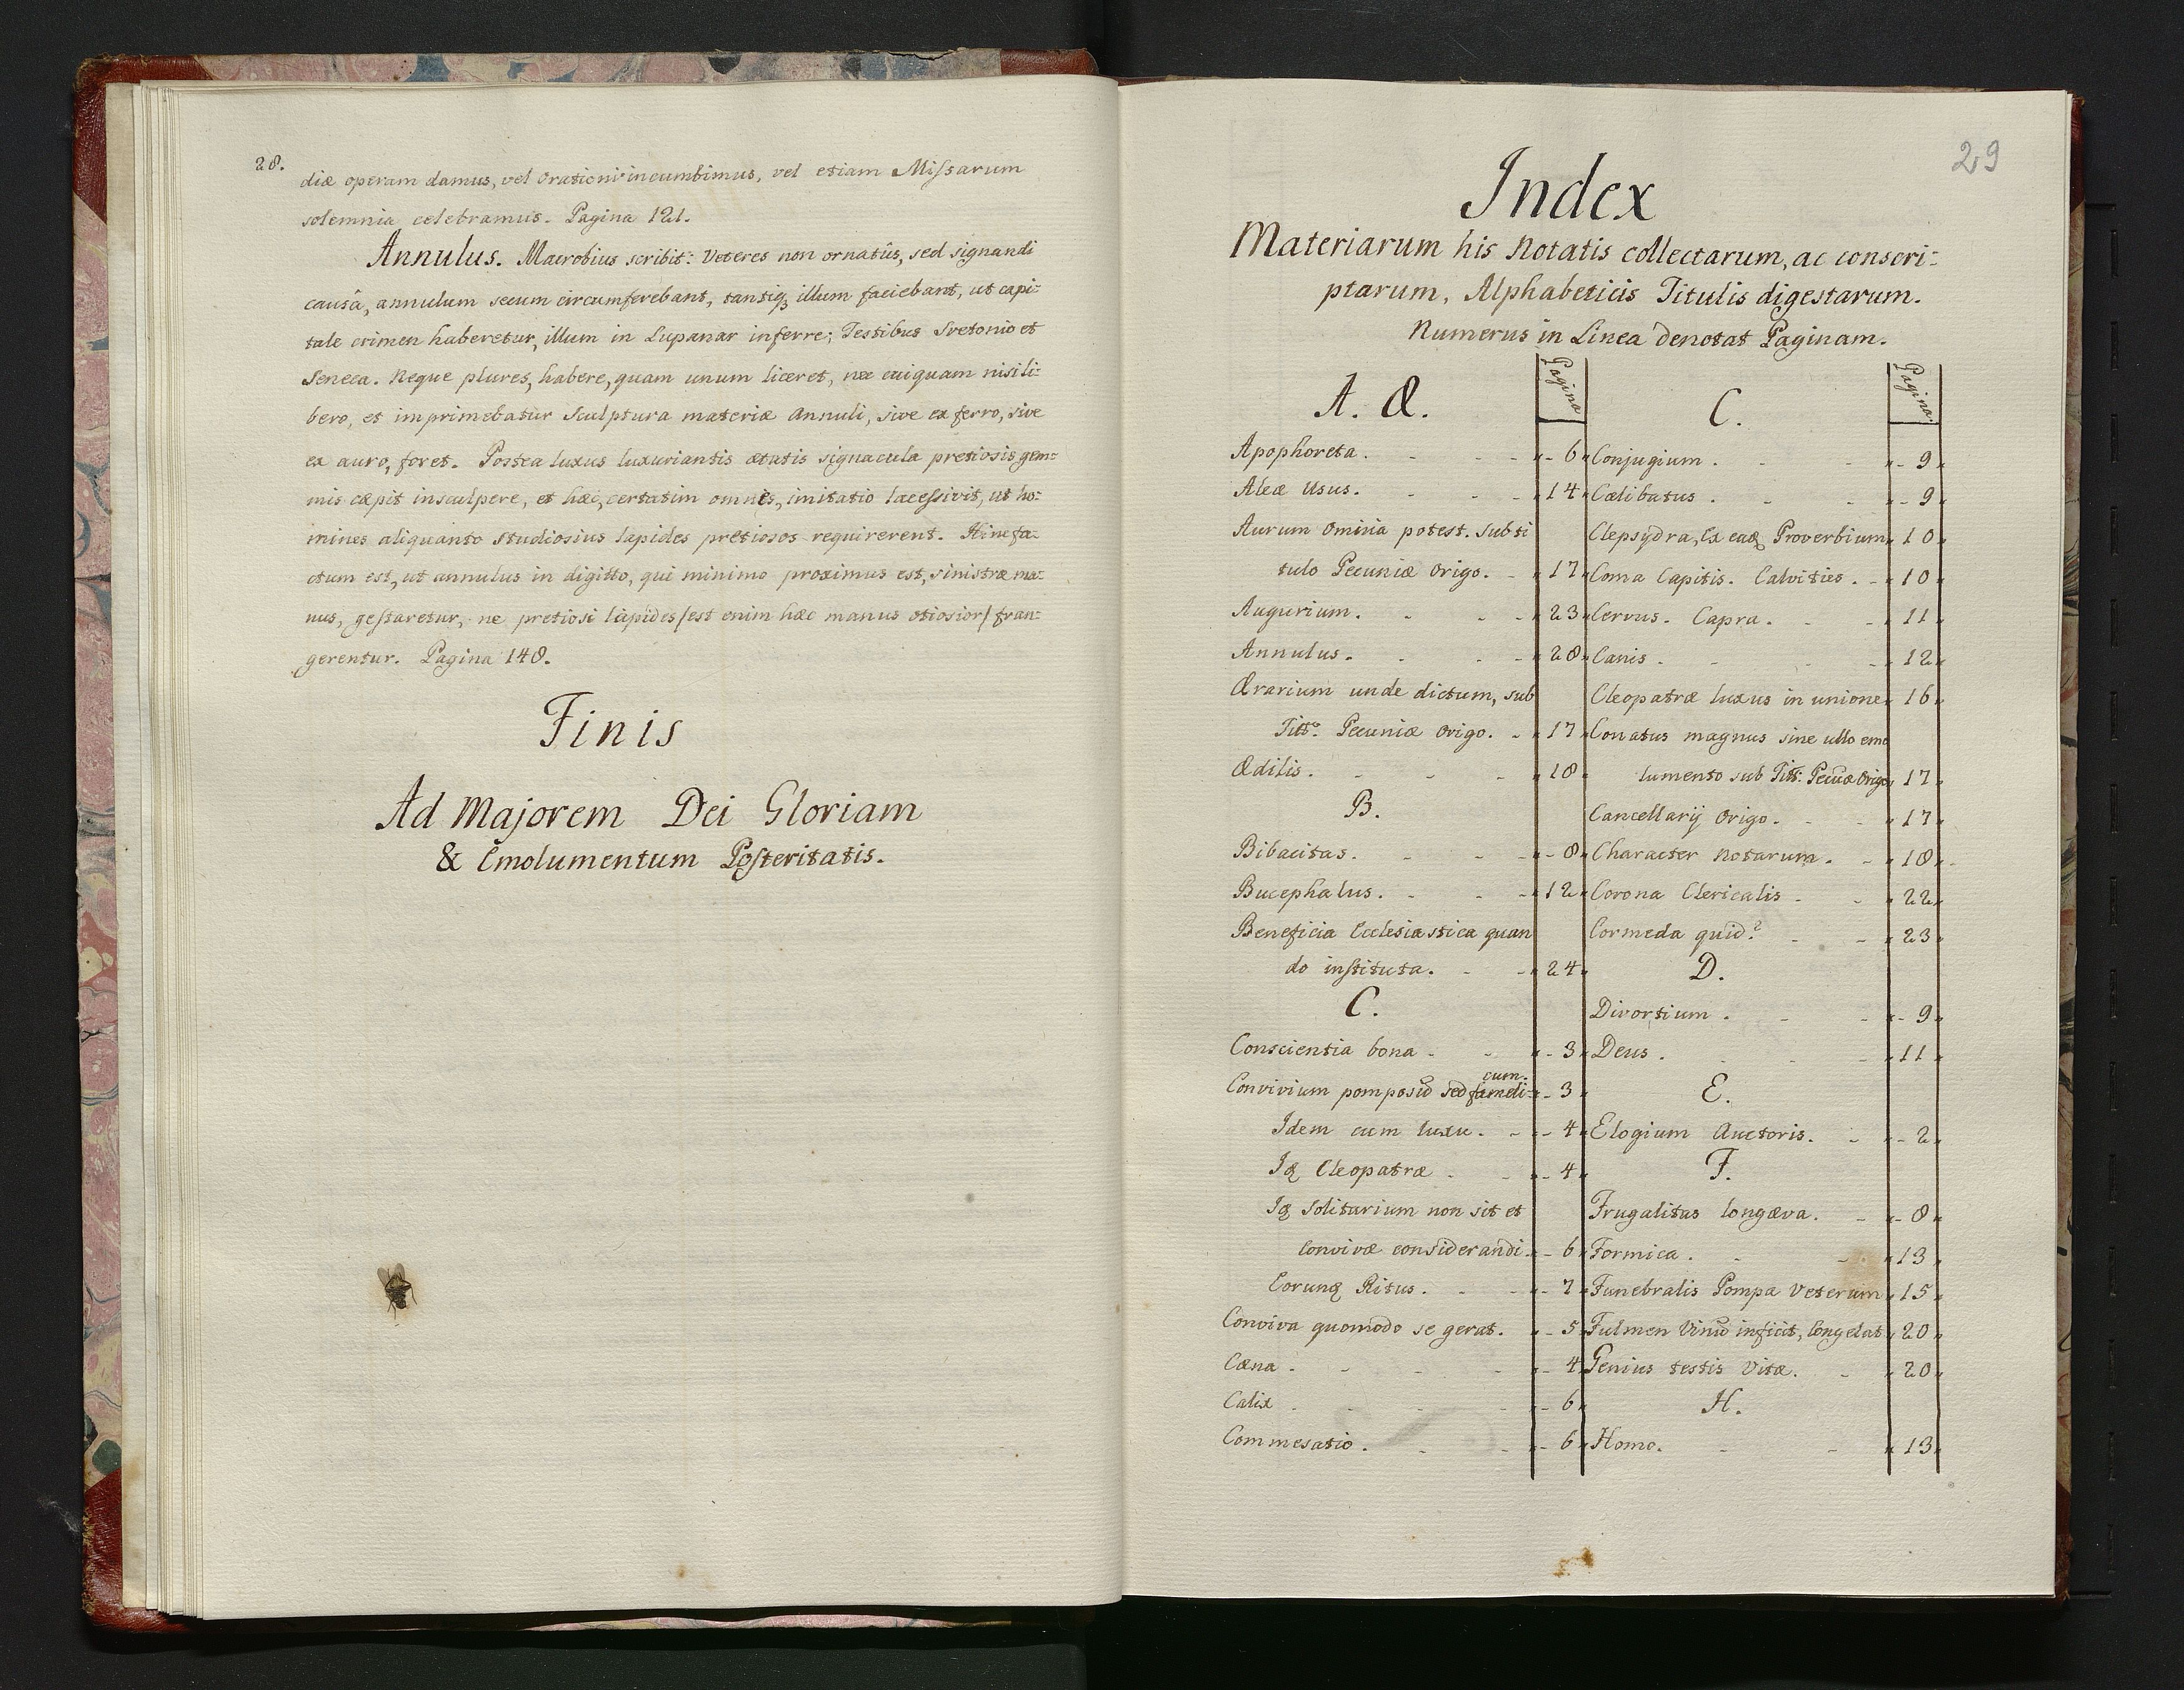 28.
diæ operam damus, vel Orationi incumbimus, vel etiam Missarum
solemnia celebramus. Pagina 121.
Annulus. Macrobius scribit: Veteres non ornatûs, sed signandi
causâ, annulum secum circumferebant, tantiq; illum faciebant, ut capi-
tale crimen haberetur, illum in Lupanar inferre; Testibus Svetonio et
Seneca. Neque plures, habere, quam unum liceret, nec cuiquam nisi li-
bero, et imprimebatur Sculptura materiæ Annuli, sive ex ferro, sive
ex auro, foret. Postea luxus luxuriantis ætatis signacula pretiosis gem-
mis cæpit insculpere, et hæc, certatim omnes, imitatio lacessivit, ut ho-
mines aliquanto studiosius lapides pretiosos requirerent. Hinc fa-
ctum est, ut annulus in digitto, qui minimo proximus est, sinistræ ma-
nus, gestaretur, ne pretiosi lapides /est enim hæc manus otiosior/ fran-
gerentur. Pagina 148.
Finis
Ad Majorem Dei Gloriam
& Emolumentum Posteritatis.
29
Index
Materiarum his Notatis collectarum, ac conscri-
ptarum, Alphabeticis Titulis digestarum.
Numerus in Linea denotat Paginam.
Pagina
A. Æ.
Apophoreta. 6
Aleæ Usus. 14
Aurum Omnia potest. Sub ti
tulo Pecuniæ Origo. 17
Augurium. 23
Annulus. 28
Ærarium unde dictum, sub
Titt: Pecuniæ Origo. 17
Ædilis. 18
B.
Bibacitas. 8
Bucephalus. 12
Beneficia Ecclesiastica quan
do instituta. 24
C.
Conscientia bona 3
cum.
Convivium pomposũ sed fameli- 3
Idem cum luxu. 4
Iq Cleopatræ 4
Iq Solitarium non sit et
Convivæ considerandi 6
Eorunq Ritus. 7
Conviva quomodo se gerat. 5
Cæna. 4
Calix 6
Commesatio. 6
Pagina
C.
Conjugium. 9
Cælibatus. 9
Clepsydra, Ex eaq Proverbium 10
Coma Capitis. Calvities. 10
Cervus. Capra. 11
Canis. 12
Cleopatræ luxus in unione 16
Conatus magnus sine ullo emo
lumento sub Titt: Pecuæ Origo 17
Cancellarij Origo. 17
Character Notarum. 18
Corona Clericalis 22
Cormeda quid? 23
D.
Divortium. 9
Deus. 11
E.
Elogium Auctoris. 2
F.
Frugalitas longæva. 8
Formica. 13
Funebralis Pompa Veterum 15
Fulmen Vinũ inficit, Congelat 20
Genius testis Vitæ. 20
H.
Homo. 13